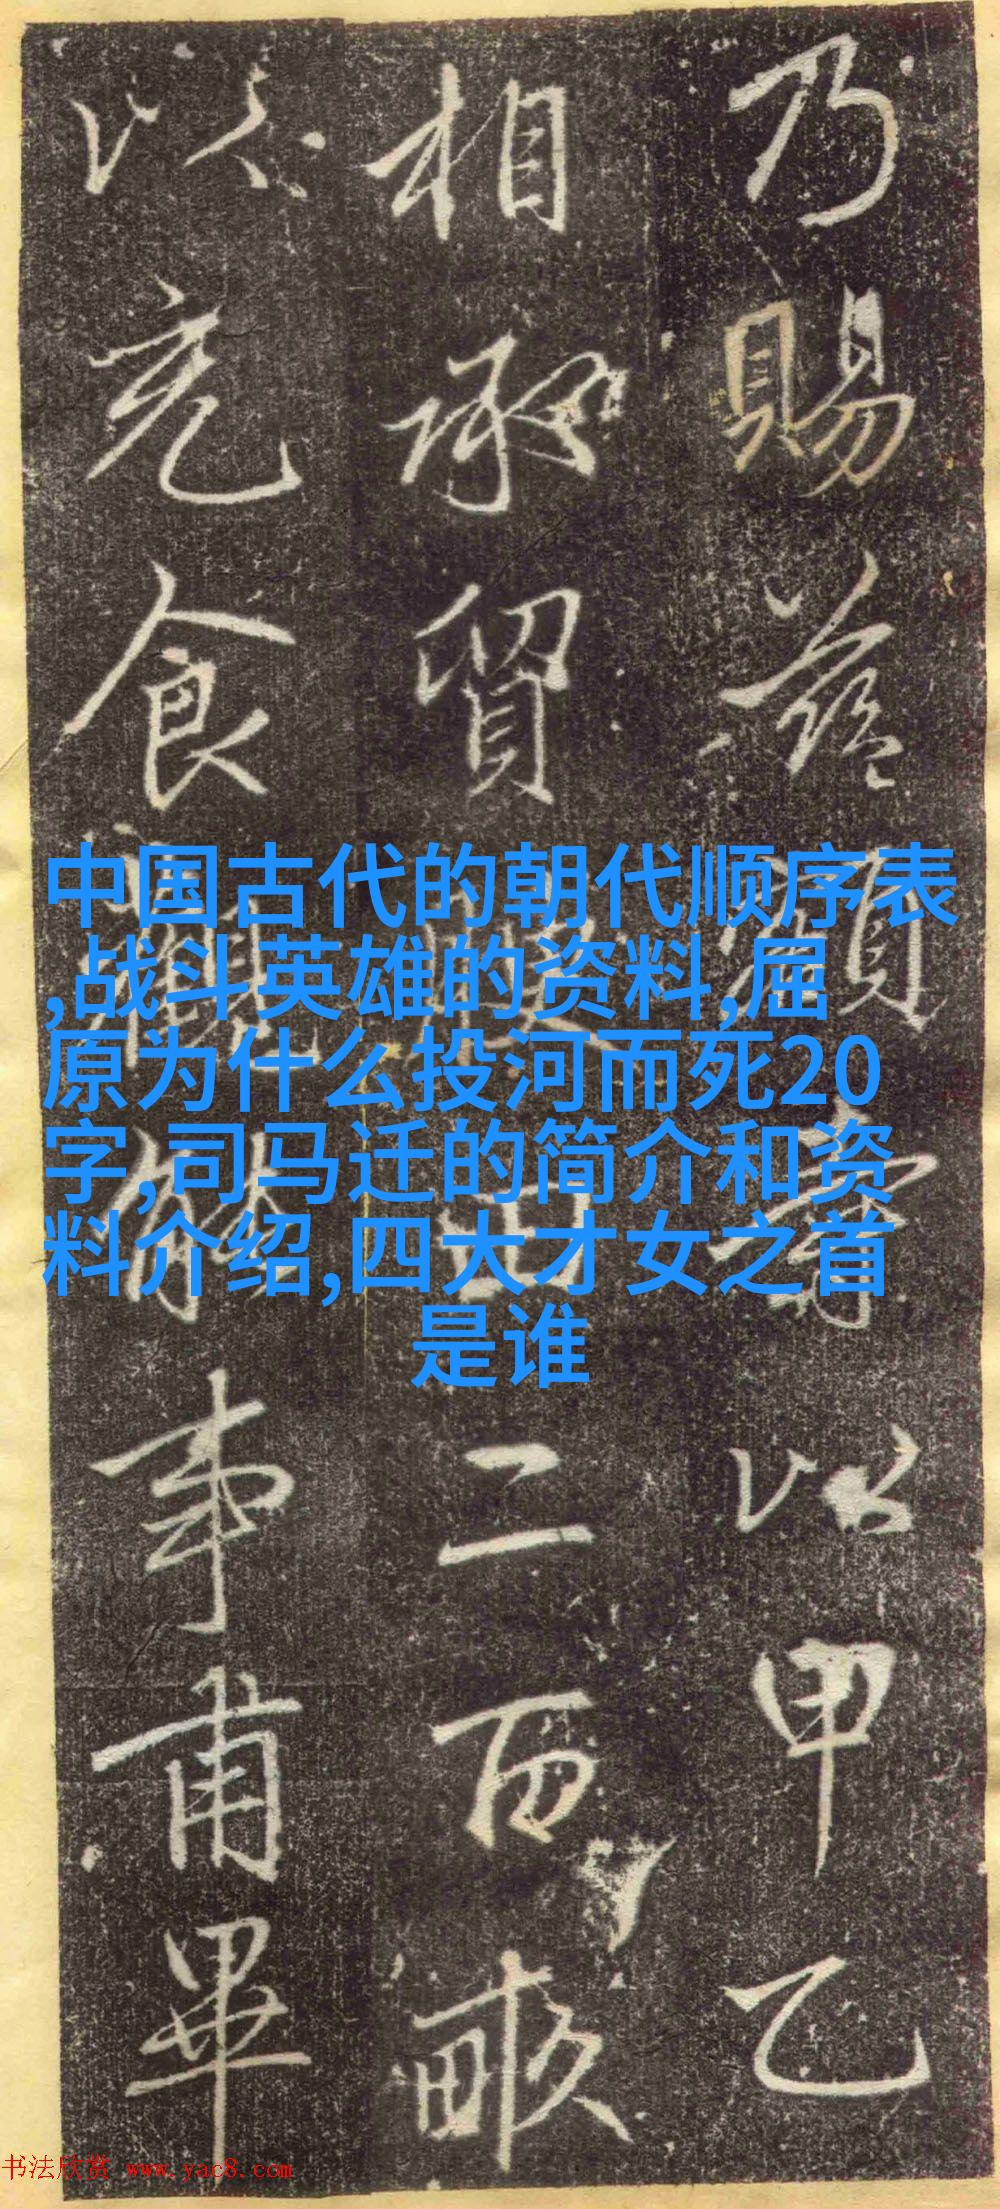 中国古代的朝代顺序表
,战斗英雄的资料,屈
原为什么投河而死20
字,司马迁的简介和资
料介绍,四大才女之首
是谁
乃賜以甲乙
相承貿田二百畝
以充食事甫畢
书法欣赏 www.yac8.com